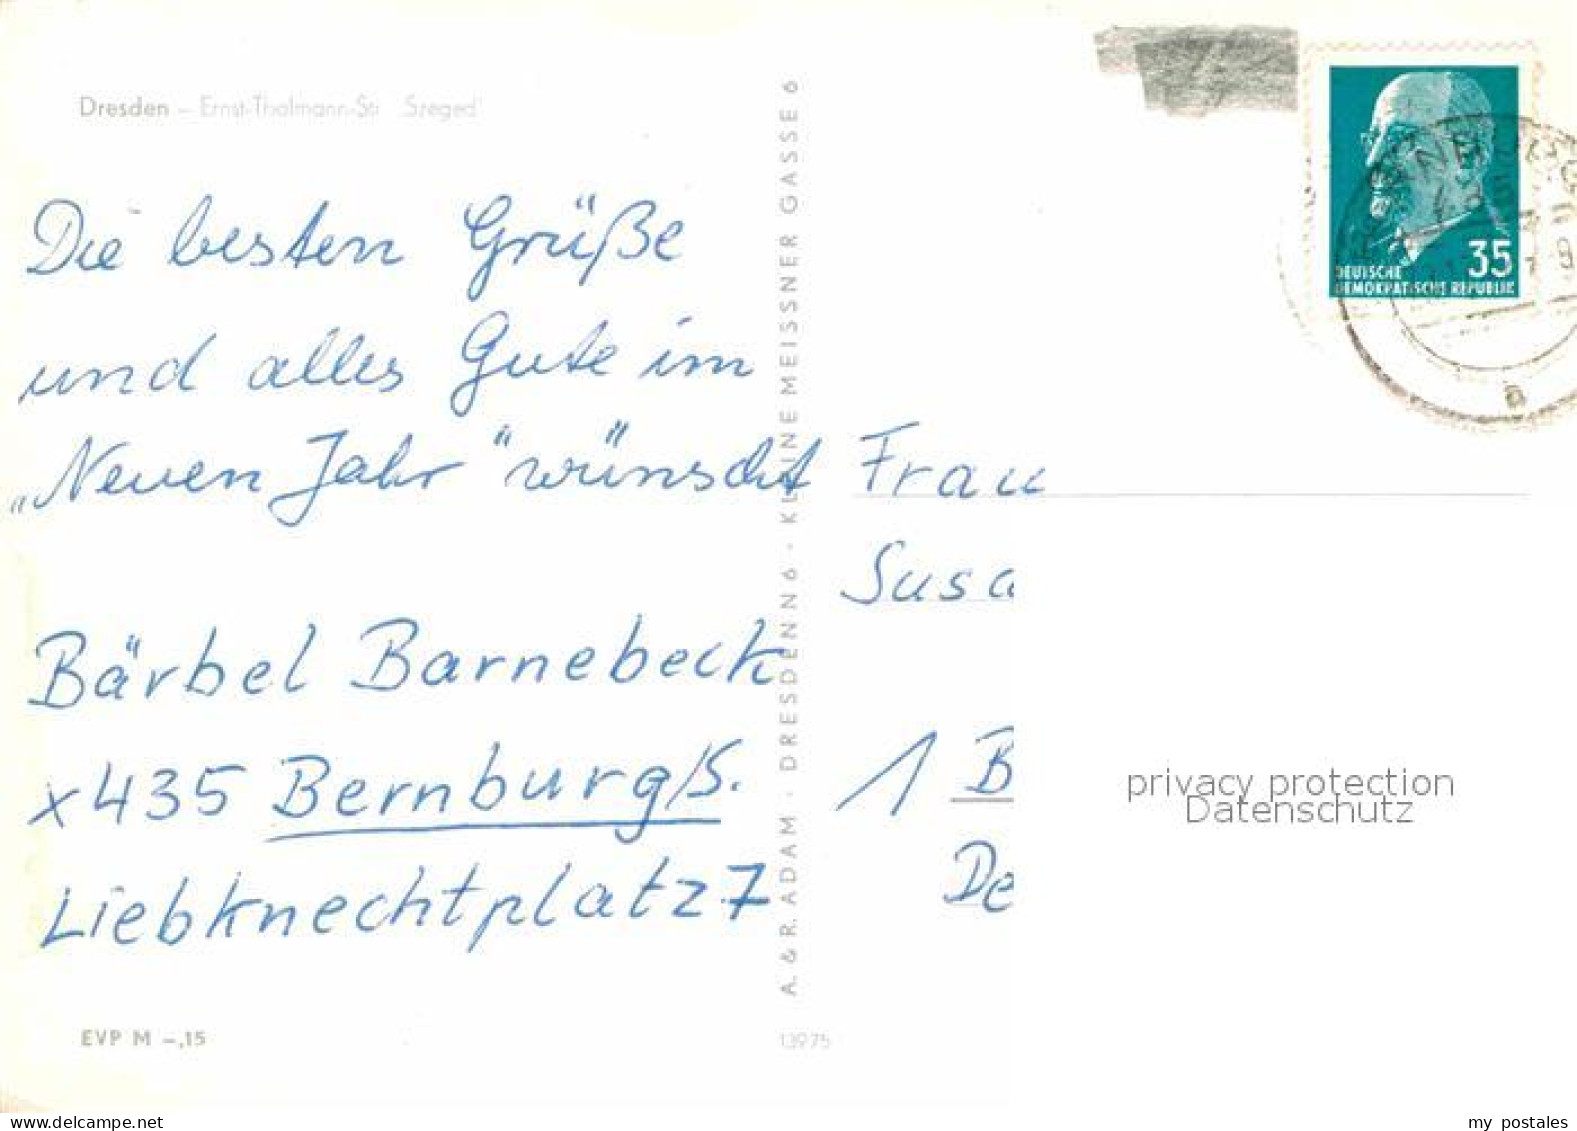 Dresden – Ernst-Thälmann-Str. „Szeged"
Die besten Grüße
und alles Gute im
„Neuen Jahr" wünscht
Bärbel Barnebeck
x435 Bernburg/S.
Liebknechtplatz 7
EVP M –,15
A. & R. ADAM · DRESDEN N 6 · KLEINE MEISSNER GASSE 6
13975
35
DEUTSCHE
DEMOKRATISCHE REPUBLIK
a
Frau
Susa
1 B
De
privacy protection
Datenschutz
www.delcampe.net
my_postales